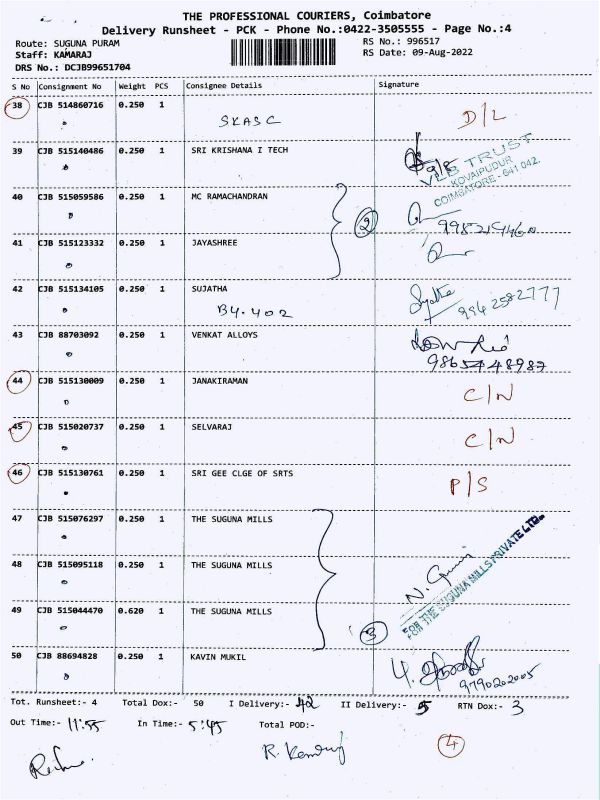 THE PROFESSIONAL COURIERS, Coimbatore
Delivery Runsheet - PCK - Phone No.:0422-3505555 - Page No.:4
Route: SUGUNA PURAM RS No.: 996517
Staff: KAMARAJ RS Date: 09-Aug-2022
DRS No.: DCJB99651704
S No Consignment No Weight PCS Consignee Details Signature
38 CJB 514860716 0.250 1 SKASC D/L
39 CJB 515140486 0.250 1 SRI KRISHANA I TECH
VLB TRUST
KOVAIPUDUR
COIMBATORE - 641 042.
40 CJB 515059586 0.250 1 MC RAMACHANDRAN
2
41 CJB 515123332 0.250 1 JAYASHREE
42 CJB 515134105 0.250 1 SUJATHA
B4-402 9942582777
43 CJB 88703092 0.250 1 VENKAT ALLOYS
9865448987
44 CJB 515130009 0.250 1 JANAKIRAMAN C/N
45 CJB 515020737 0.250 1 SELVARAJ C/N
46 CJB 515130761 0.250 1 SRI GEE CLGE OF SRTS P/S
47 CJB 515076297 0.250 1 THE SUGUNA MILLS
48 CJB 515095118 0.250 1 THE SUGUNA MILLS
FOR THE SUGUNA MILLS PRIVATE LTD.
49 CJB 515044470 0.620 1 THE SUGUNA MILLS
3
50 CJB 88694828 0.250 1 KAVIN MUKIL
9790202005
Tot. Runsheet:- 4 Total Dox:- 50 I Delivery:- 42 II Delivery:- 5 RTN Dox:- 3
Out Time:- 11:55 In Time:- 5:45 Total POD:-
4